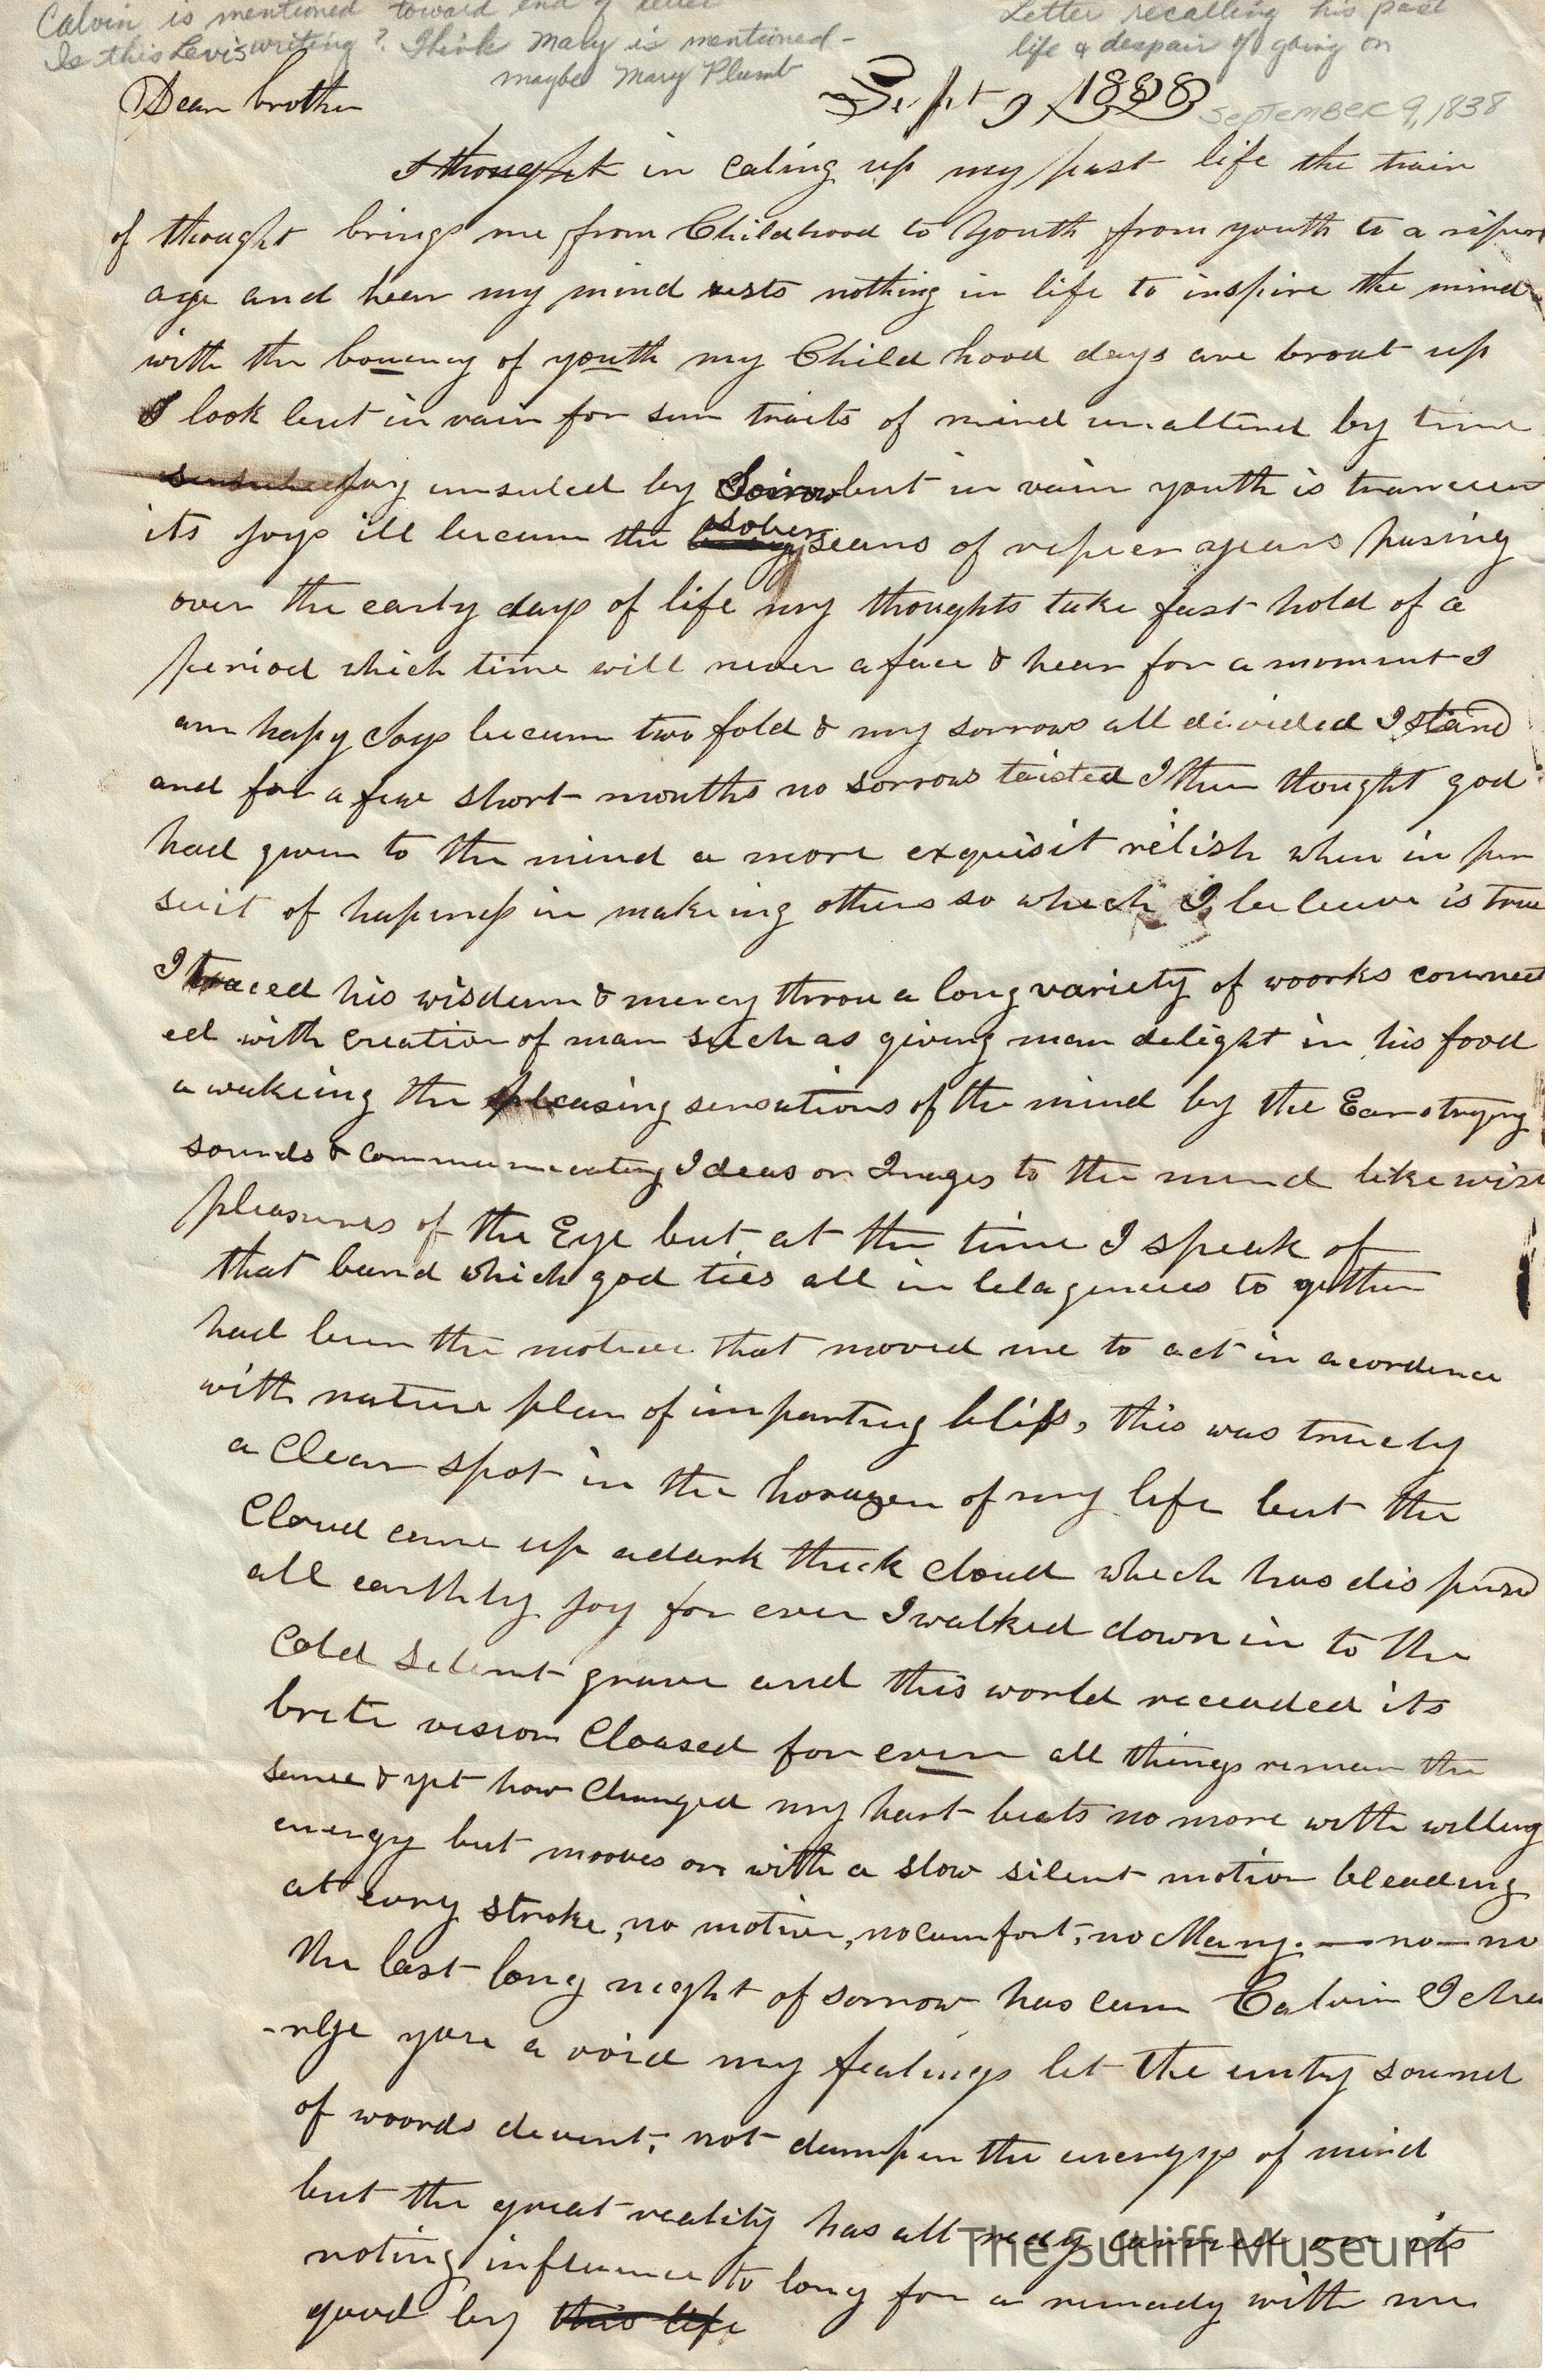 Calvin is mentioned toward end of letter
Is this Levi's writing? Think Mary is mentioned -
maybe Mary Plumb
Letter recalling his past
life & despair of going on
Dear brother
Sept 9 1838
September 9, 1838
I thought in caling up my past life the train
of thought brings me from Childhood to Youth from youth to a riper
age and hear my mind rests nothing in life to inspire the mind
with the bouency of youth my Child hood days are brout up
I look but in vain for sum traits of mind unaltered by time
joy unsuled by Sorrow but in vain youth is
its joys ill becum the sober seans of ripier years pasing
over the early days of life my thoughts take fast hold of a
period which time will never aface & hear for a moment I
am hapy Joys becum two fold & my sorrows all divided I stand
and for a few short months no sorrows taisted I then thought god
had given to the mind a more exquisit relish when in pur
suit of hapiness in makeing others so which I beleieve is true
I traced his wisdum & mercy throu a long variety of woorks connect
ed with creation of man such as giving man delight in his food
a wakeing the pleasing sensations of the mind by the Ear
sounds & communicating Ideas or Images to the mind like wise
pleasures of the Eye but at the time I speak of
that band which god ties all in telagences to gether
had been the motive that moved me to act in acordence
with nature plan of imparting bliss, this was truely
a Clear spot in the horizen of my life but the
Cloud came up a dark thick cloud which has dis persed
all earthly joy for ever I walked down in to the
Cold silent grave and this world receaded its
brite vision Cloased for ever all things remain the
same & yet how Changed my hart beats no more with willing
energy but mooves on with a slow silent motion bleading
at evry stroke, no motive, no cumfort, no Mary. — no — no
the last long night of sorrow has cum Calvin I cha
-rge you a void my fealings let the emty sound
of woords divert, not dampen the energys of mind
but the great reality has all redy carried on its
roting influence to long for a remady with me
good by this life
The Sutliff Museum